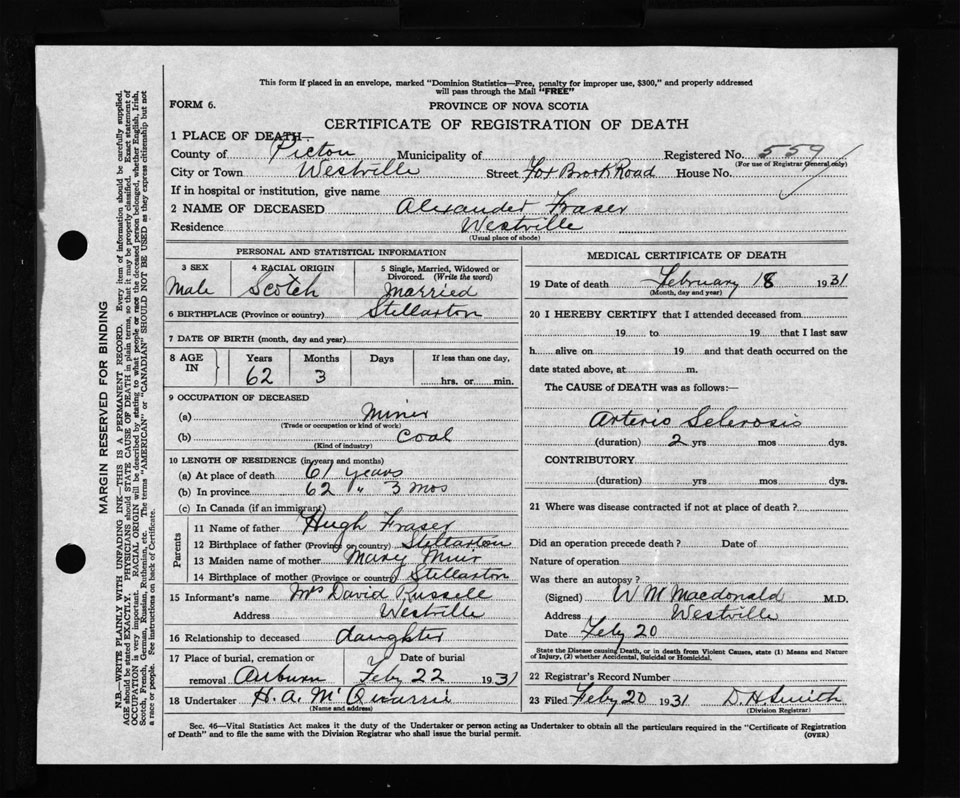 This form if placed in an envelope, marked "Dominion Statistics—Free, penalty for improper use, $300," and properly addressed
will pass through the Mail "FREE"
FORM 6.
PROVINCE OF NOVA SCOTIA
CERTIFICATE OF REGISTRATION OF DEATH
1 PLACE OF DEATH—
County of Pictou Municipality of Registered No. 559
(For use of Registrar General only)
City or Town Westville Street Fox Brook Road House No.
If in hospital or institution, give name
2 NAME OF DECEASED Alexander Fraser
Residence Westville
(Usual place of abode)
PERSONAL AND STATISTICAL INFORMATION
3 SEX 4 RACIAL ORIGIN 5 Single, Married, Widowed or
Divorced. (Write the word)
Male Scotch Married
6 BIRTHPLACE (Province or country) Stellarton
7 DATE OF BIRTH (month, day and year)
8 AGE IN Years Months Days If less than one day,
62 3 hrs. or min.
9 OCCUPATION OF DECEASED
(a) Miner
(Trade or occupation or kind of work)
(b) Coal
(Kind of industry)
10 LENGTH OF RESIDENCE (in years and months)
(a) At place of death 61 years
(b) In province 62 " 3 mos
(c) In Canada (if an immigrant)
Parents
11 Name of father Hugh Fraser
12 Birthplace of father (Province or country) Stellarton
13 Maiden name of mother Mary Muir
14 Birthplace of mother (Province or country) Stellarton
15 Informant's name Mrs David Russell
Address Westville
16 Relationship to deceased daughter
17 Place of burial, cremation or Date of burial
removal Auburn Feby 22 1931
18 Undertaker H. A. McQuarrie
(Name and address)
MEDICAL CERTIFICATE OF DEATH
19 Date of death February 18 1931
(Month, day and year)
20 I HEREBY CERTIFY that I attended deceased from
19 to 19 that I last saw
h alive on 19 and that death occurred on the
date stated above, at m.
The CAUSE of DEATH was as follows:—
Arterio Sclerosis
(duration) 2 yrs mos dys.
CONTRIBUTORY
(duration) yrs. mos. dys.
21 Where was disease contracted if not at place of death?
Did an operation precede death? Date of
Nature of operation
Was there an autopsy?
(Signed) W M Macdonald M.D.
Address Westville
Date Feby 20
State the Disease causing Death, or in death from Violent Causes, state (1) Means and Nature
of Injury, (2) whether Accidental, Suicidal or Homicidal.
22 Registrar's Record Number
23 Filed Feby 20 1931 D. H. Smith
(Division Registrar)
Sec. 46—Vital Statistics Act makes it the duty of the Undertaker or person acting as Undertaker to obtain all the particulars required in the "Certificate of Registration
of Death" and to file the same with the Division Registrar who shall issue the burial permit. (OVER)
MARGIN RESERVED FOR BINDING
N.B.—WRITE PLAINLY WITH UNFADING INK—THIS IS A PERMANENT RECORD. Every item of information should be carefully supplied.
AGE should be stated EXACTLY. PHYSICIANS should STATE CAUSE OF DEATH in plain terms, so that it may be properly classified. Exact statement of
OCCUPATION is very important. RACIAL ORIGIN will be described by stating to what people or race the deceased person belonged, whether English, Irish,
Scotch, French, German, Russian, Ruthenian, etc. The terms "AMERICAN" or "CANADIAN" SHOULD NOT BE USED as they express citizenship but not
a race or people. See instructions on back of Certificate.